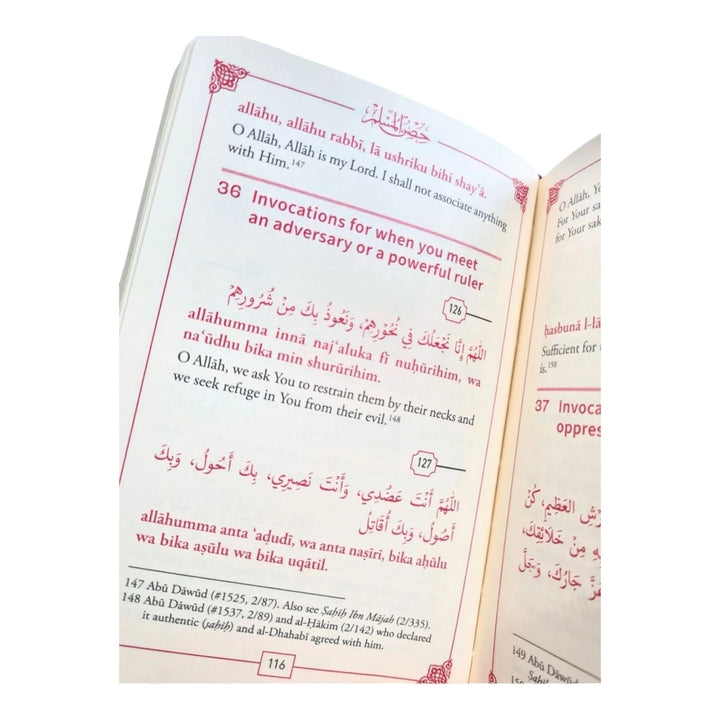 حصن المسلم
allāhu, allāhu rabbī, lā ushriku bihi shay'ā.
O Allāh, Allāh is my Lord. I shall not associate anything
with Him.147
36 Invocations for when you meet
an adversary or a powerful ruler
126
اللَّهُمَّ إِنَّا نَجْعَلُكَ فِي نُحُورِهِمْ، وَنَعُوذُ بِكَ مِنْ شُرُورِهِمْ
allāhumma innā naj'aluka fī nuḥūrihim, wa
na'ūdhu bika min shurūrihim.
O Allāh, we ask You to restrain them by their necks and
we seek refuge in You from their evil.148
127
اللَّهُمَّ أَنْتَ عَضُدِي، وَأَنْتَ نَصِيرِي، بِكَ أَحُولُ، وَبِكَ
أَصُولُ، وَبِكَ أُقَاتِلُ
allāhumma anta 'aḍudī, wa anta naṣīrī, bika aḥūlu
wa bika aṣūlu wa bika uqātil.
147 Abū Dāwūd (#1525, 2/87). Also see Ṣaḥīḥ Ibn Mājah (2/335).
148 Abū Dāwūd (#1537, 2/89) and al-Ḥākim (2/142) who declared
it authentic (ṣaḥīḥ) and al-Dhahabī agreed with him.
116
O Allāh,
For Your
for Your
ḥasbunā
Sufficient for
is.150
37
العَظِيمِ، كُنْ
مِنْ خَلَائِقِكَ،
جَارُكَ، وَجَلَّ
149 Abū
150